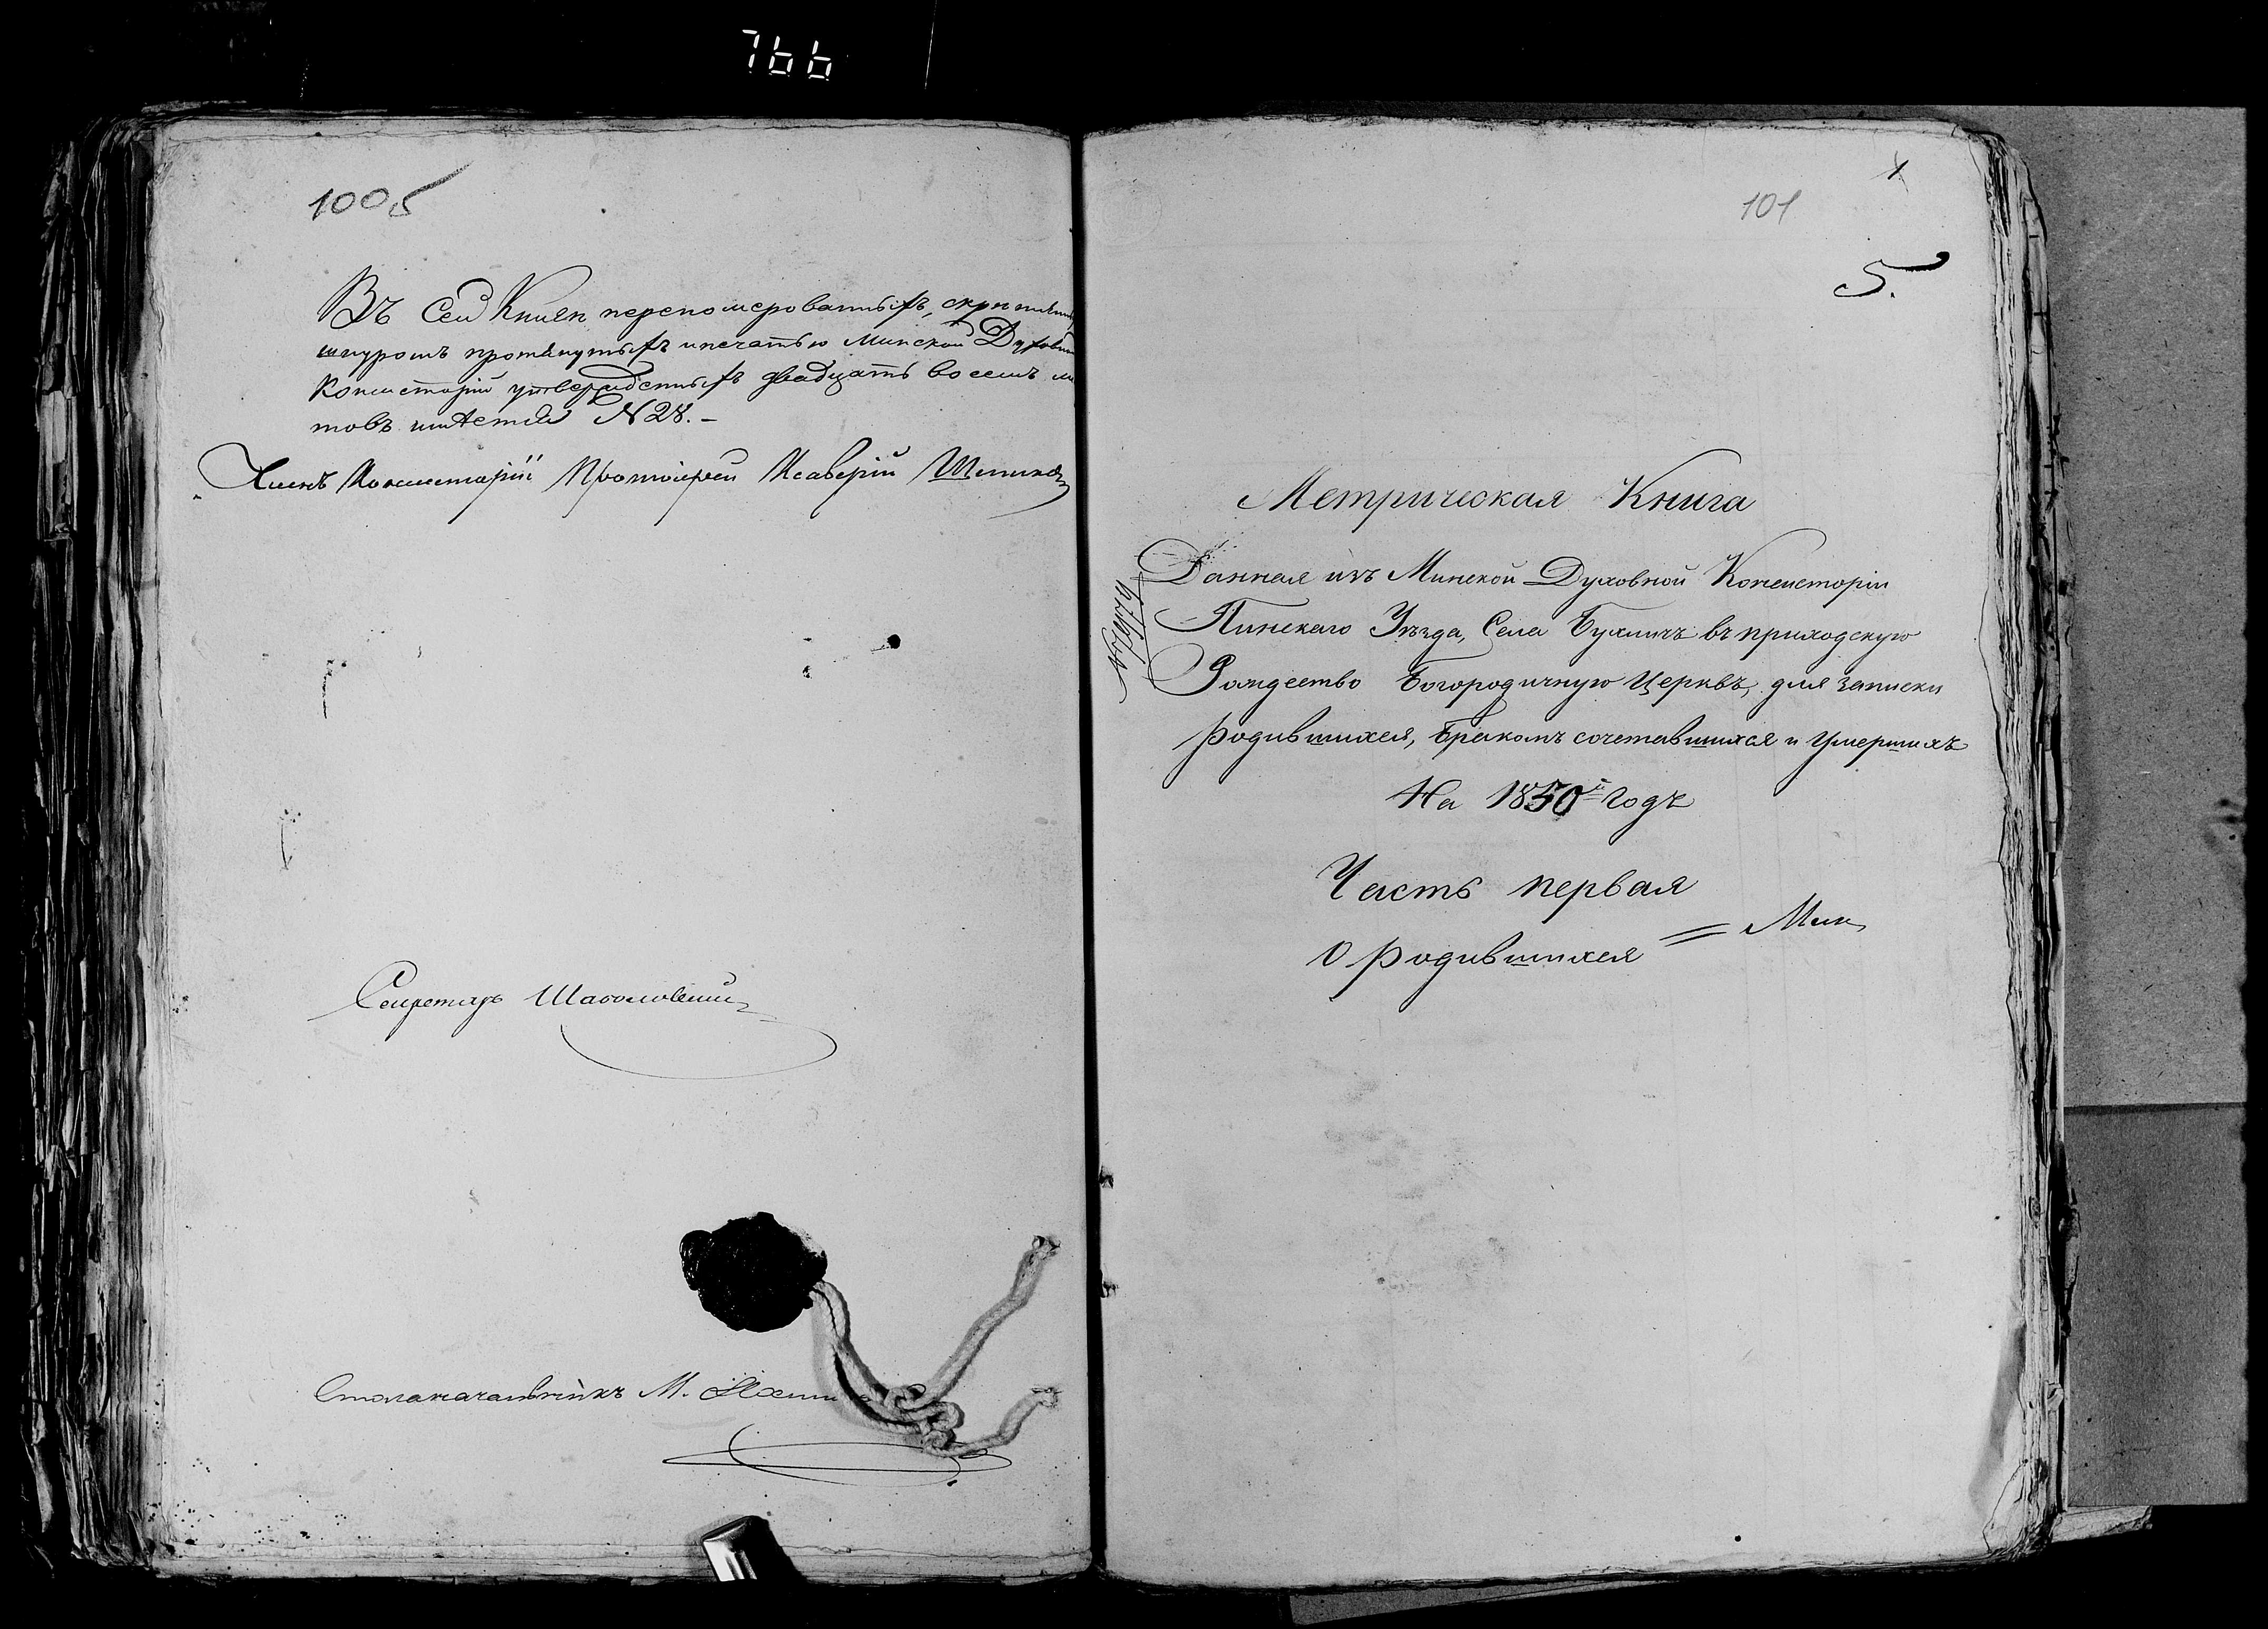 766
1005
Въ сей Книгѣ переномерованныхъ, скрѣпленн
шнуромъ протянутыхъ и печатью Минской Духовной
Консисторіи утвержденныхъ двадцать восемь ли
товъ имѣется N 28. –
Членъ Консисторіи Протоіерей Ксаверій
Секретарь
Столоначальникъ М.
101
5.
Метрическая Книга
Данная изъ Минской Духовной Консисторіи
Пинскаго Уѣзда, Села Бухличъ въ приходскую
Рождество Богородичную Церквь, для записки
родившихся, Бракомъ сочетавшихся и Умершихъ
На 1850й годъ
Часть первая
О родившихся =